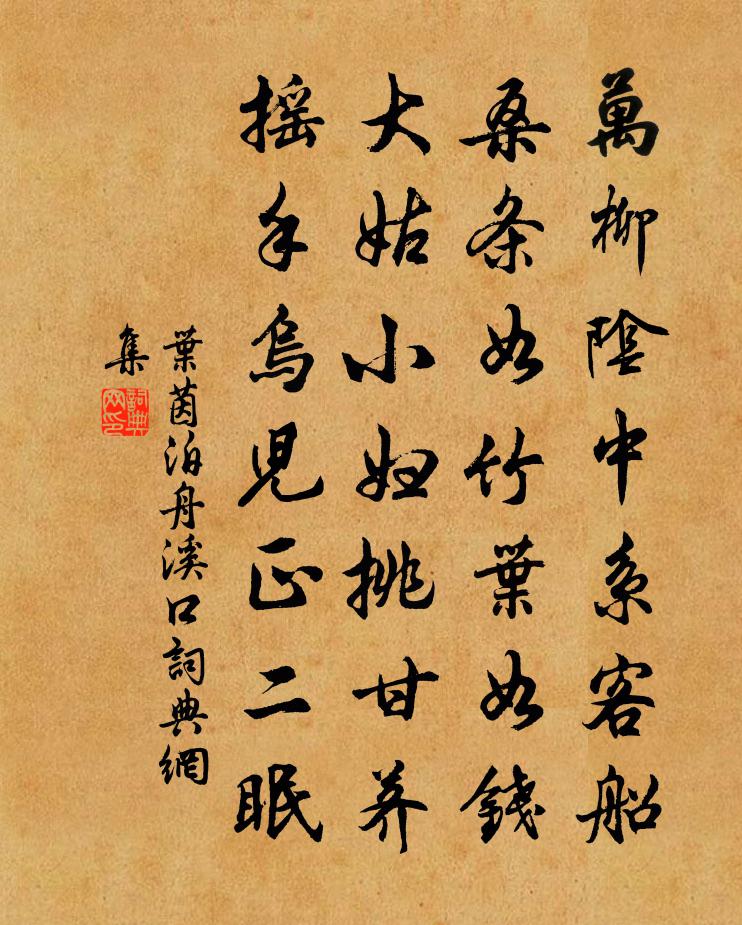 萬柳陰中系客船
桑条如竹葉如錢
大姑小妇挑甘养
摇手烏児正二眠
葉茵泊舟溪口詞典網
集
詞典网印